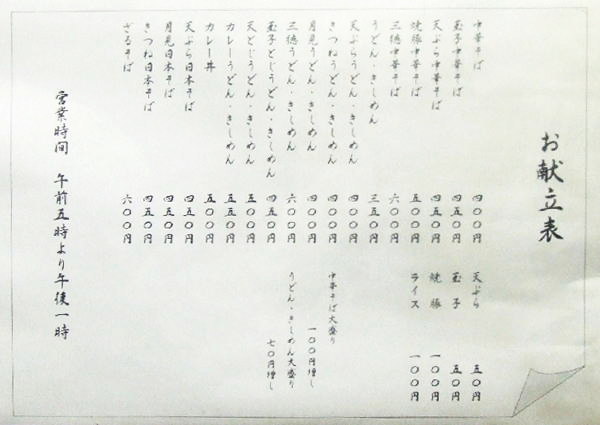 お献立表
中華そば 四〇〇円
玉子中華そば 四五〇円
天ぷら中華そば 四五〇円
焼豚中華そば 五〇〇円
三徳中華そば 六〇〇円
うどん・きしめん 三五〇円
天ぷらうどん・きしめん 四〇〇円
きつねうどん・きしめん 四〇〇円
月見うどん・きしめん 四〇〇円
三徳うどん・きしめん 六〇〇円
玉子とじうどん・きしめん 四五〇円
天とじうどん・きしめん 五〇〇円
カレーうどん・きしめん 五五〇円
カレー丼 五〇〇円
天ぷら日本そば 四五〇円
月見日本そば 四五〇円
きつね日本そば 四五〇円
ざるそば 六〇〇円
天ぷら 五〇円
玉子 五〇円
焼豚 一〇〇円
ライス 一〇〇円
中華そば大盛り
一〇〇円増し
うどん・きしめん大盛り
七〇円増し
営業時間 午前五時より午後一時